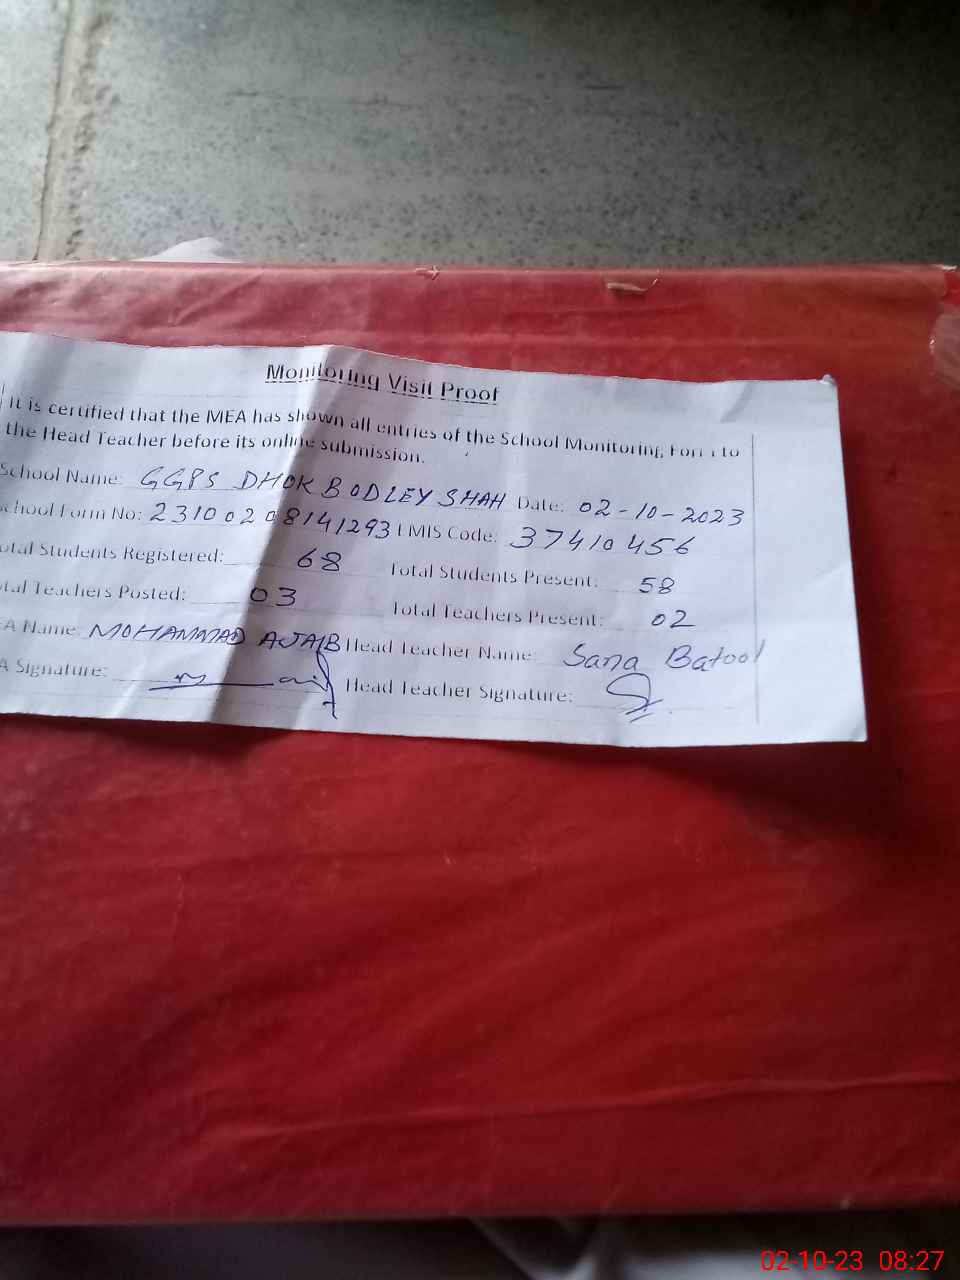 Monitoring Visit Proof
It is certified that the MEA has shown all entries of the School Monitoring Form to
the Head Teacher before its online submission.
School Name: GGPS DHOK BODLEY SHAH Date: 02-10-2023
chool Form No: 23100208141293 EMIS Code: 37410456
otal Students Registered: 68 Total Students Present: 58
tal Teachers Posted: 03 Total Teachers Present: 02
EA Name: MOHAMMAD AJAIB Head Teacher Name: Sana Batool
A Signature: Head Teacher Signature:
02-10-23 08:27